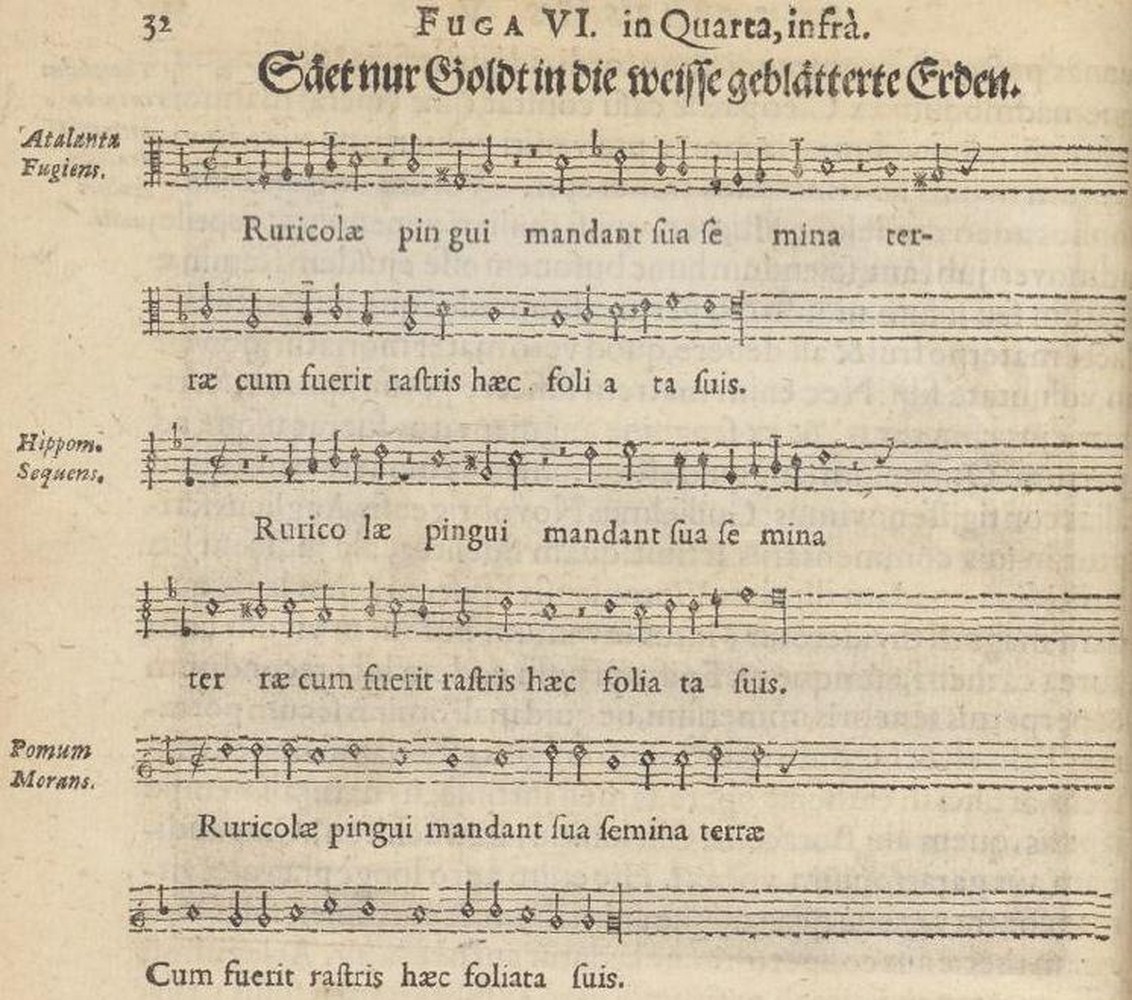 32 FUGA VI. in Quarta, infrà.
Säet nur Goldt in die weisse geblätterte Erden.
Atalanta
Fugiens.
Ruricolæ pin gui mandant ſua ſe mina ter-
ræ cum fuerit raſtris hæc foli a ta ſuis.
Hippom.
Sequens.
Rurico læ pingui mandant ſua ſe mina
ter ræ cum fuerit raſtris hæc folia ta ſuis.
Pomum
Morans.
Ruricolæ pingui mandant ſua ſemina terræ
Cum fuerit raſtris hæc foliata ſuis.